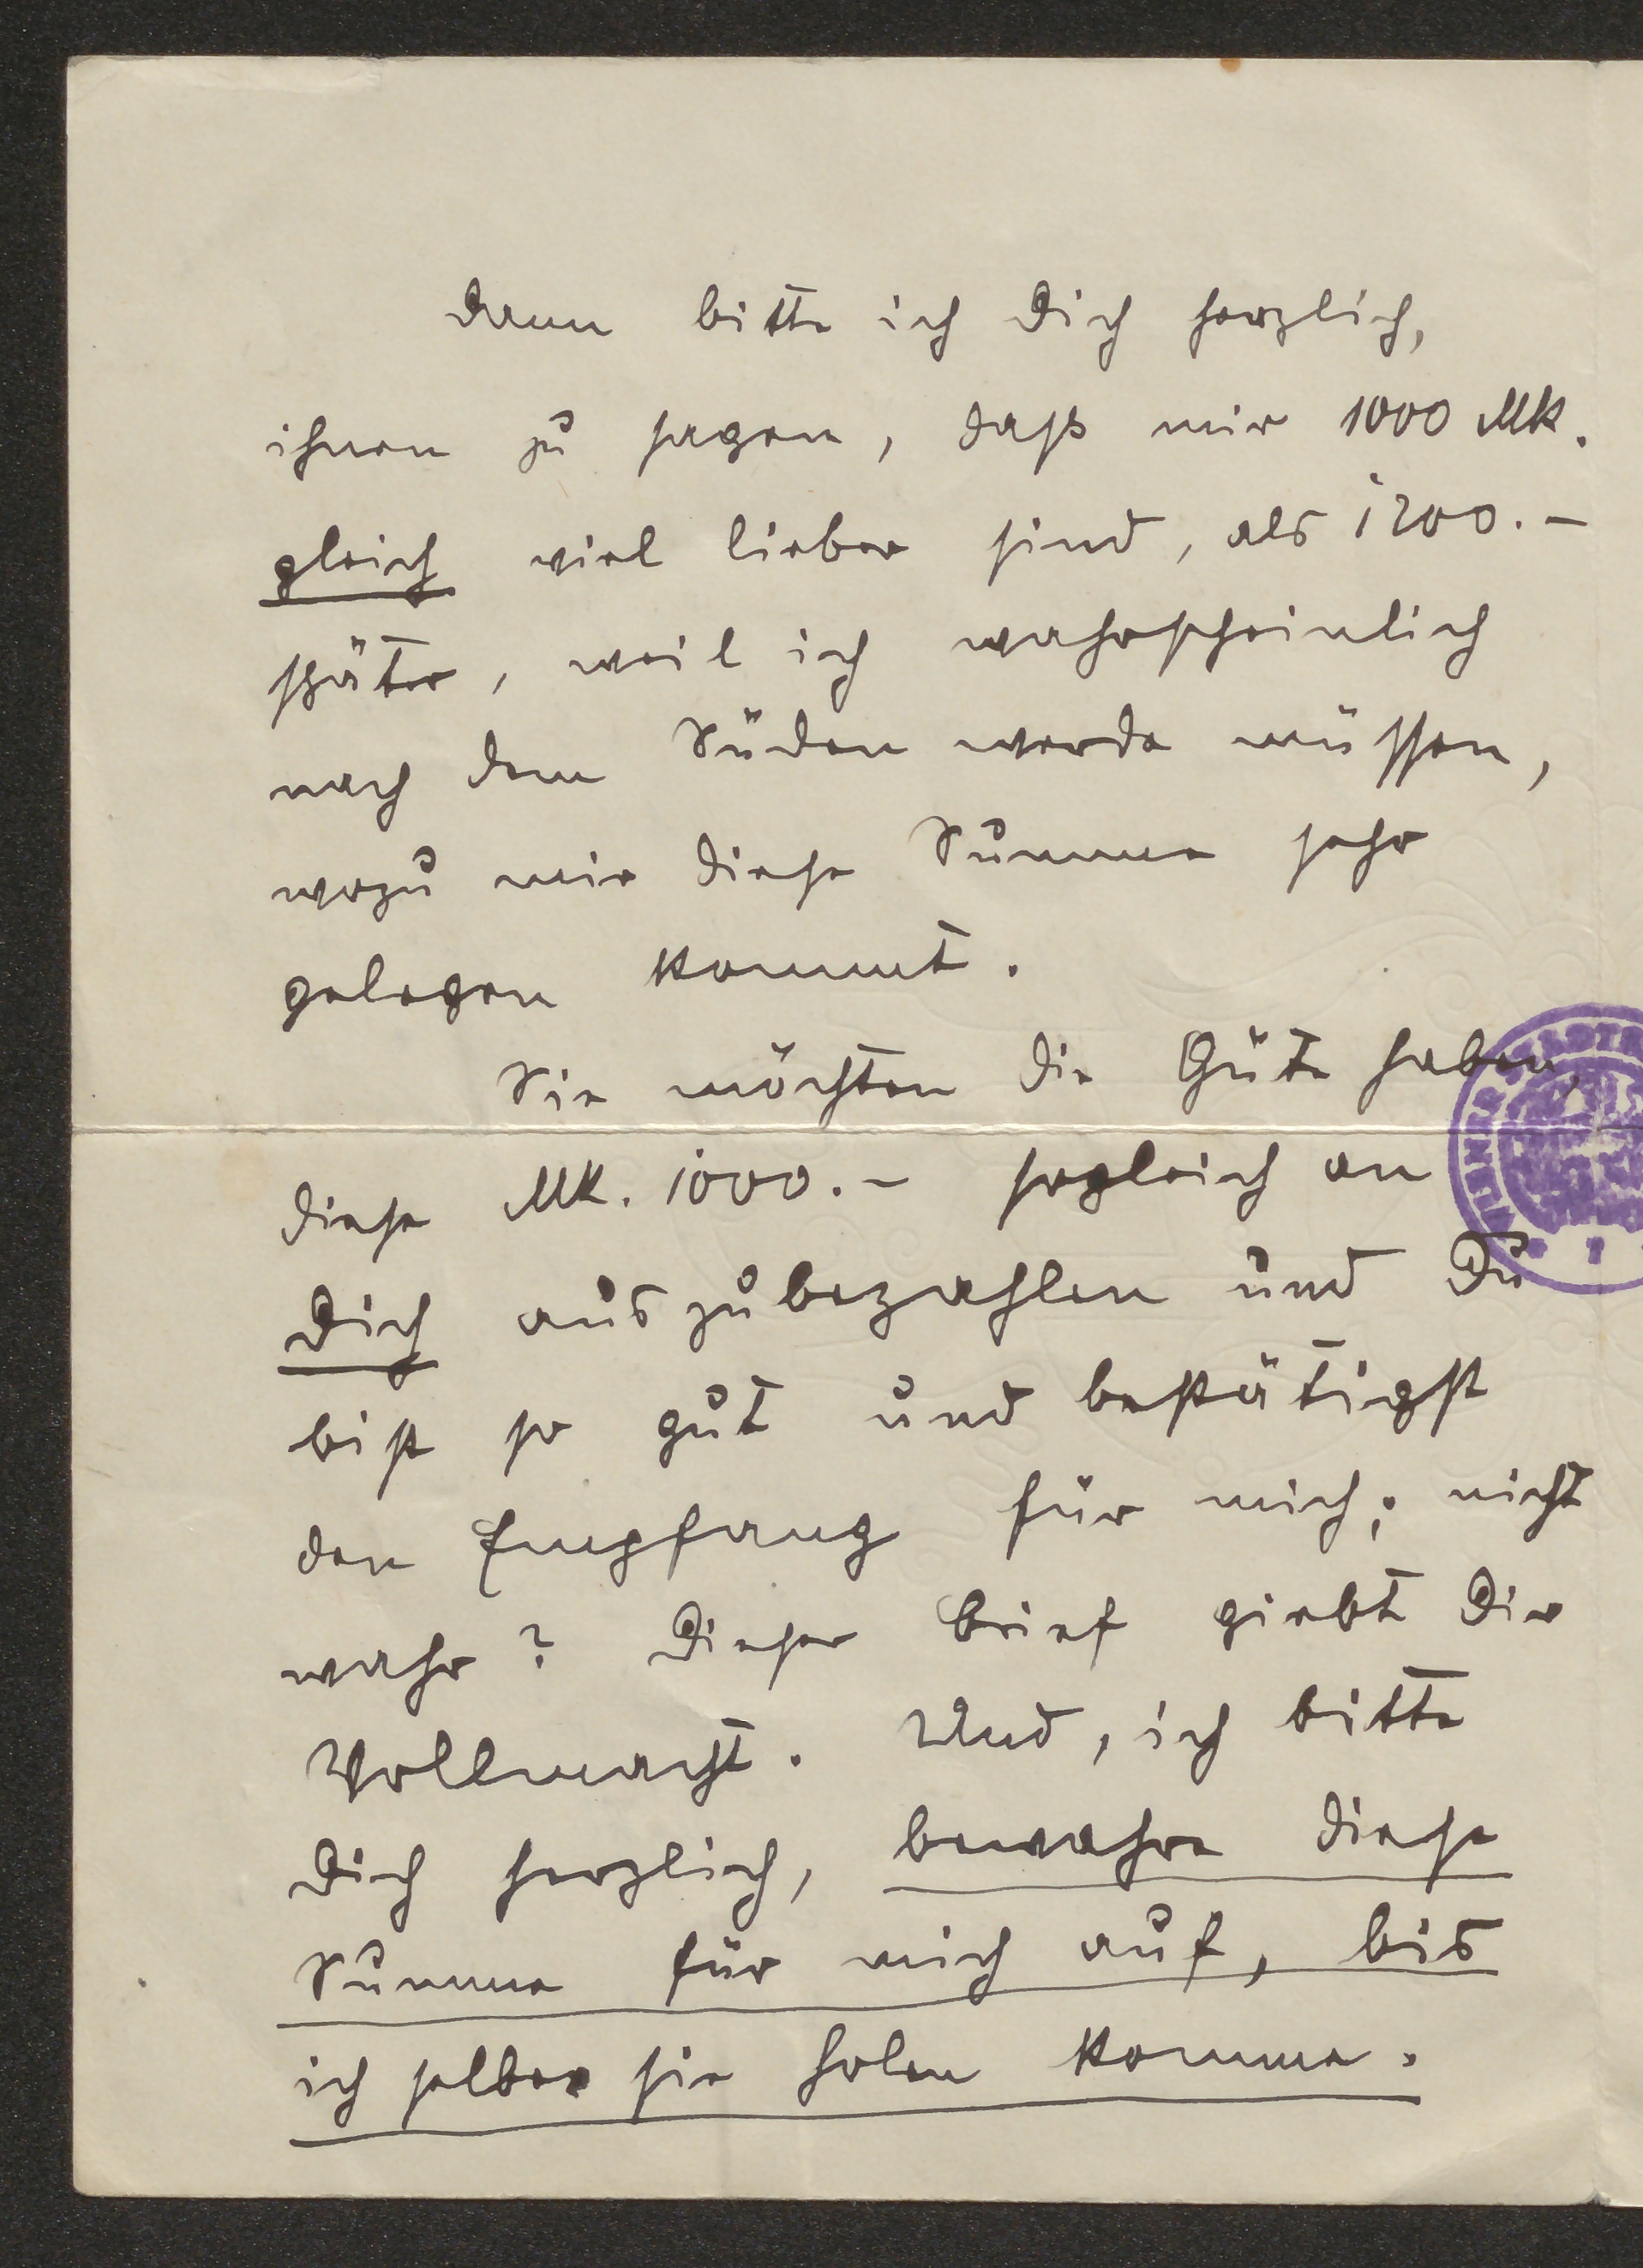 dann bitte ich Dich herzlich,
ihnen zu sagen, daß mir 1000 Mk.
gleich viel lieber sind, als 1200.–
später, weil ich wahrscheinlich
nach dem Süden werde müssen,
wozu mir diese Summe sehr
gelegen kommt.
Sie möchten die Güte haben,
diese Mk. 1000.– sogleich an
Dich auszubezahlen und Du
bist so gut und bestätigst
den Empfang für mich; nicht
wahr? Dieser Brief giebt Dir
Vollmacht. Und, ich bitte
Dich herzlich, bewahre diese
Summe für mich auf, bis
ich selber sie holen komme.